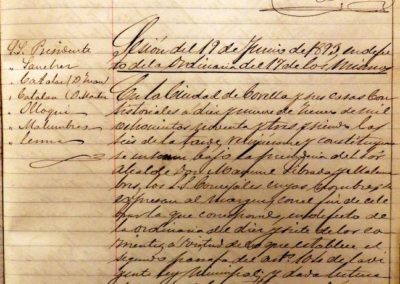 SS. Presidente
" Sanchez
" Catalan (D. Juan
" Catalan (D. Mateo
" Alogui
" Malumbres
" Serna
Sesion del 19 de Junio de 1893 en defec-
to de la Ordinaria del 17 de los mismos
En la Ciudad de Corella y sus casas Con-
sistoriales a diez y nueve de Junio de mil
ochocientos noventa y tres siendo las
seis de la tarde, se
se bajo la presidencia del Sor.
Alcalde Don Manuel Virado y Malum-
bres, los S.S. Concejales cuyos nombres se
expresan al margen, con el fin de cele-
brar la que corresponde, en defecto de
la ordinaria del diez y siete de los co-
rrientes, a virtud de lo que establece el
segundo parrafo del art.º 104 de la vi-
gente ley Municipal; y dada lectura